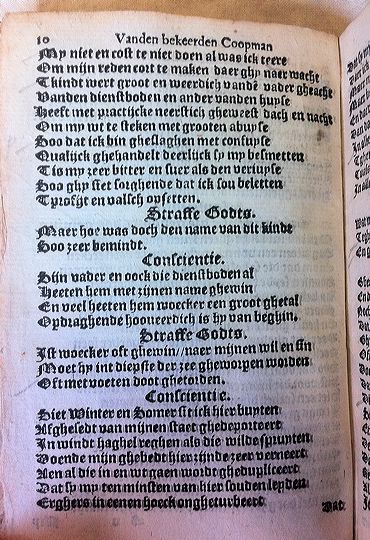 10 Vanden bekeerden Coopman
My niet en cost te niet doen al was ick teere
Om mijn reden cort te maken daer ghy naer wacht
Tkindt wert groot en weerdich vandē vader gheacht
Vanden dienstboden en ander vanden huyse
Heeft met practijcke neerstich gheweest dach en nacht
Om my wt te steken met grooten abuyse
Soo dat ick bin gheslaghen met confuyse
Qualijck ghehandelt deerlijck sy my besmetten
Tis my zeer bitter en suer als den veriuyse
Soo ghy siet sorghende dat ick sou beletten
Tprofijt en valsch opsetten.
Straffe Godts.
Maer hoe was doch den name van dit kindt
Soo zeer bemindt.
Conscientie.
Sijn vader en oock die dienstboden al
Heeten hem met zijnen name ghewin
En veel heeten hem woecker een groot ghetal
Opdraghende hooveerdich is hy van beghin.
Straffe Godts.
Ist woecker oft ghewin//naer mijnen wil en sin
Moet hy int diepste der zee gheworpen worden
Oft met voeten doot ghetorden.
Conscientie.
Siet Winter en Somer sit ick hier buyten
Afghesedt van mijnen staet ghedeporteert
In windt haghel reghen als die wilde spruyten
Doende mijn ghebedt hier zijnde zeer verneert
Aen al die in en wtgaen wordt ghedupliceert
Dat sy my ten minsten van hier souden leyden
Erghers in eenen hoeck ongheturbeert
Dat